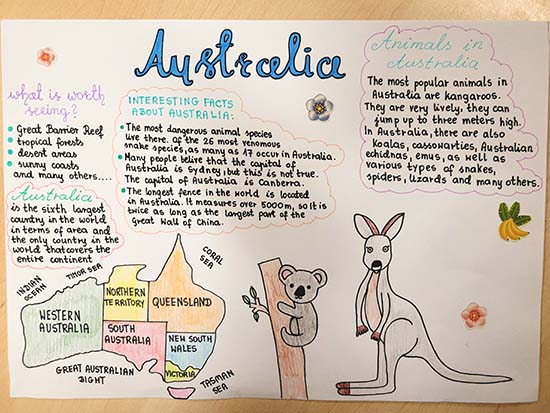 Australia
what is worth
seeing?
Great Barrier Reef
tropical forests
desert areas
sunny coasts
and many others....
Australia
is the sixth largest
country in the world
in terms of area and
the only country in the
world that covers the
entire continent
INTERESTING FACTS
ABOUT AUSTRALIA:
The most dangerous animal species
live there. Of the 25 most venomous
snake species, as many as 17 occur in Australia.
Many people belive that the capital of
Australia is Sydney, but this is not true.
The capital of Australia is Canberra.
The longest fence in the world is located
in Australia. It measures over 5000m, so it is
twice as long as the largest part of the
Great Wall of China.
Animals in
Australia
The most popular animals in
Australia are kangaroos.
They are very lively, they can
jump up to three meters high.
In Australia, there are also
Koalas, cassowarties, Australian
echidnas, emus, as well as
various types of snakes,
spiders, lizards and many others.
INDIAN
OCEAN
TIMOR SEA
CORAL
SEA
WESTERN
AUSTRALIA
NORTHERN
TERRITORY
QUEENSLAND
SOUTH
AUSTRALIA
NEW SOUTH
WALES
VICTORIA
GREAT AUSTRALIAN
BIGHT
TASMAN
SEA